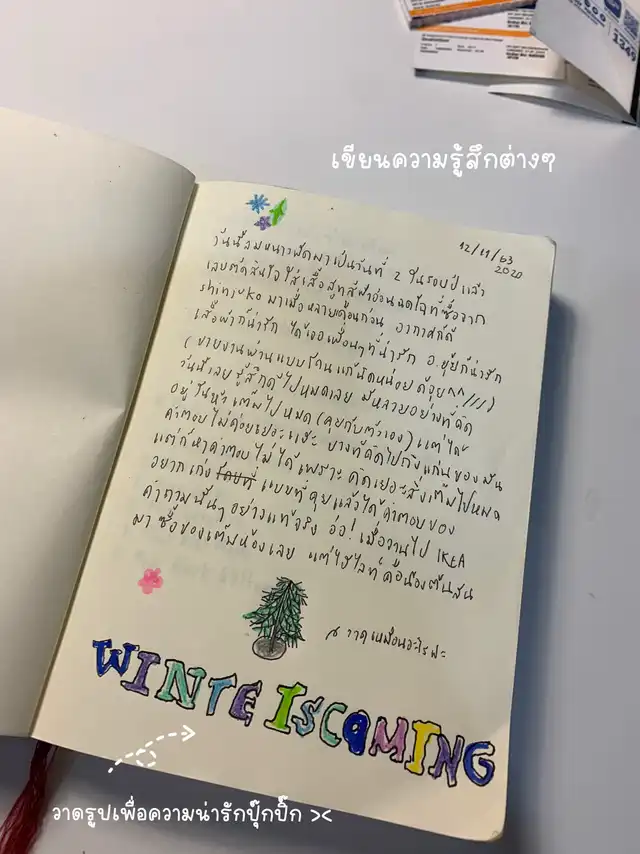 เขียนความรู้สึกต่างๆ
12/11/63
2020
วันนี้ลมหนาวพัดมาเป็นวันที่ 2 ในรอบปีแล้ว
เลยตัดสินใจใส่เสื้อสูทสีฟ้าอ่อนฉดใจที่ซื้อจาก
shinjuko มาเมื่อหลายเดือนก่อน อากาศก็ดี
เสื้อผ้าก็น่ารัก ได้เจอเพื่อนๆที่น่ารัก อ.ยุ้ยก็น่ารัก
(ขายงานผ่านแบบโดนแก้นิดหน่อย ดีจุย^^!!!)
วันนี้เลยรู้สึกดีไปหมดเลย มีหลายอย่างที่คิด
อยู่ในหัวเต็มไปหมด (คุยกับตัวเอง) แต่ได้
คำตอบไม่ค่อยเยอะแฮะ บางที่คิดไปถึงแก่นของมัน
แต่ก็หาคำตอบไม่ได้เพราะคิดเยอะสิ่งเต็มไปหมด
อยากเก่ง แบบที่คุยแล้วได้คำตอบของ
คำถามนั้นๆอย่างแท้จริง อ่อ! เมื่อวานไป IKEA
มา ซื้อของแต่งห้องเลย แต่ไฮไลท์คือน้องต้นสน
วาดเหมือนอะไรฟะ
WINTE IS COMING
วาดรูปเพื่อความน่ารักปุ๊กปิ๊ก ><